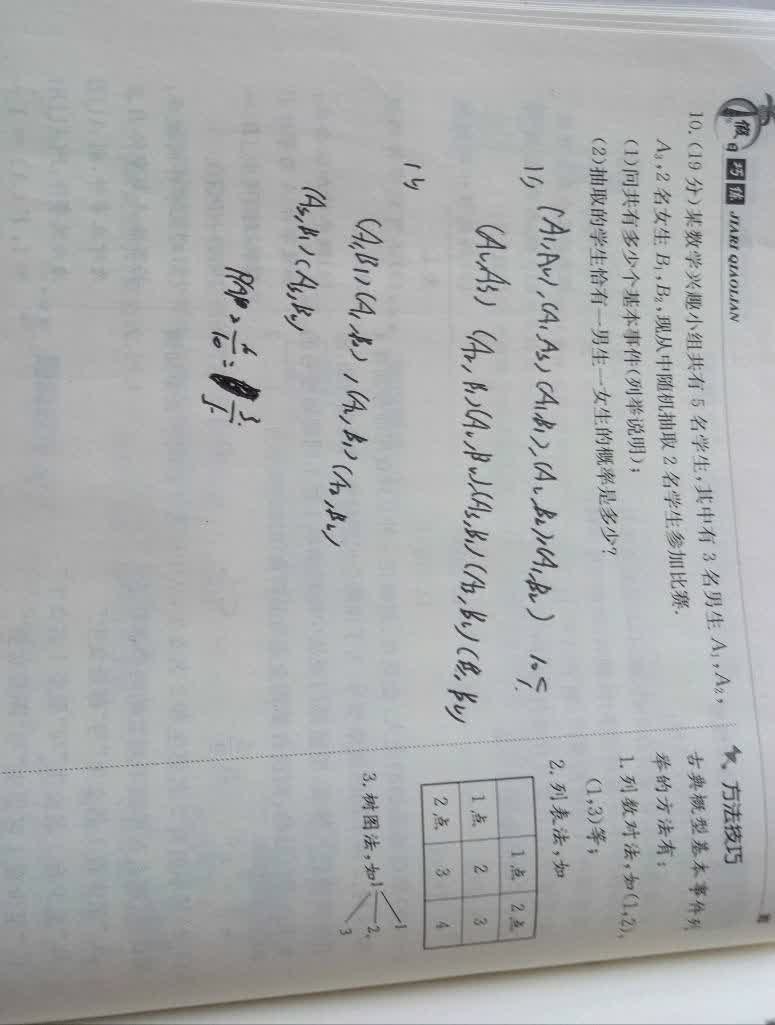 假日巧练 JIARI QIAOLIAN
10. (19 分)某数学兴趣小组共有 5 名学生,其中有 3 名男生 A₁,A₂,
A₃,2 名女生 B₁,B₂,现从中随机抽取 2 名学生参加比赛.
(1)问共有多少个基本事件(列举说明);
(2)抽取的学生恰有一男生一女生的概率是多少?
(A₁,A₂),(A₁,A₃),(A₁,B₁),(A₁,B₂) 10个
(A₂,A₃) (A₂,B₁)(A₂,B₂)(A₃,B₁)(A₃,B₂)(B₁,B₂)
(A₁,B₁)(A₁,B₂),(A₂,B₁)(A₂,B₂)
(A₃,B₁)(A₃,B₂)
6/10 = 3/5
方法技巧
古典概型基本事件列
举的方法有:
1. 列数对法,如(1,2),
(1,3)等;
2. 列表法,如
1点 2点
1点 2 3
2点 3 4
3. 树图法,如1 1
2,
3